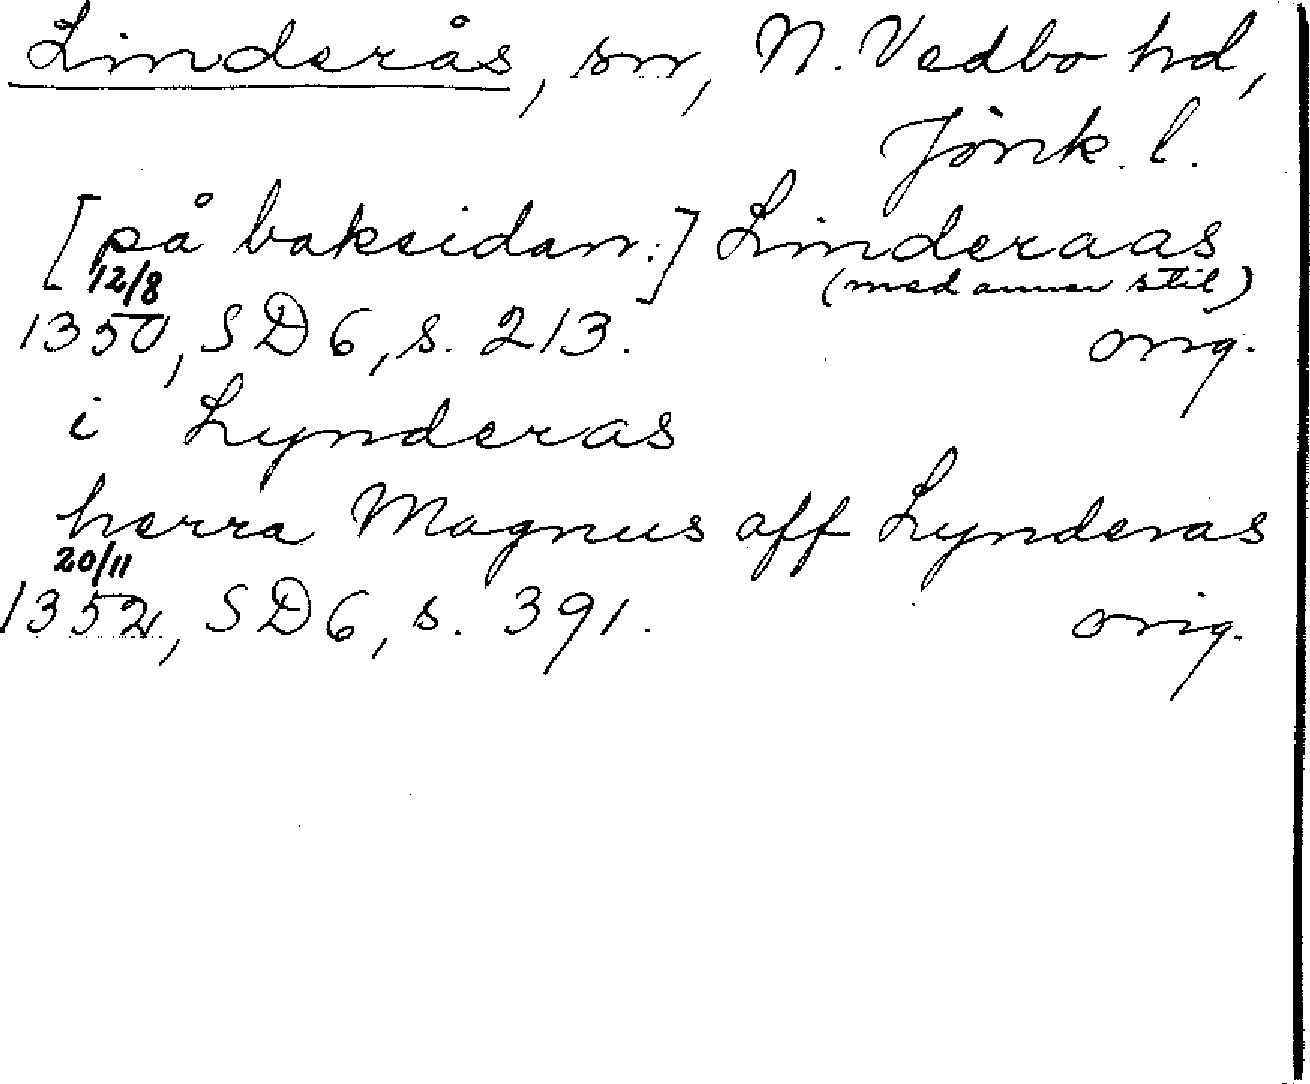 Linderås, sn, N. Vedbo hd,
Jönk. l.
[på baksidan:] Linderaas
12/8 (med annan stil)
1350, SD 6, s. 213. orig.
i Lynderas
herra Magnus aff Lynderas
20/11
1352, SD 6, s. 391. orig.